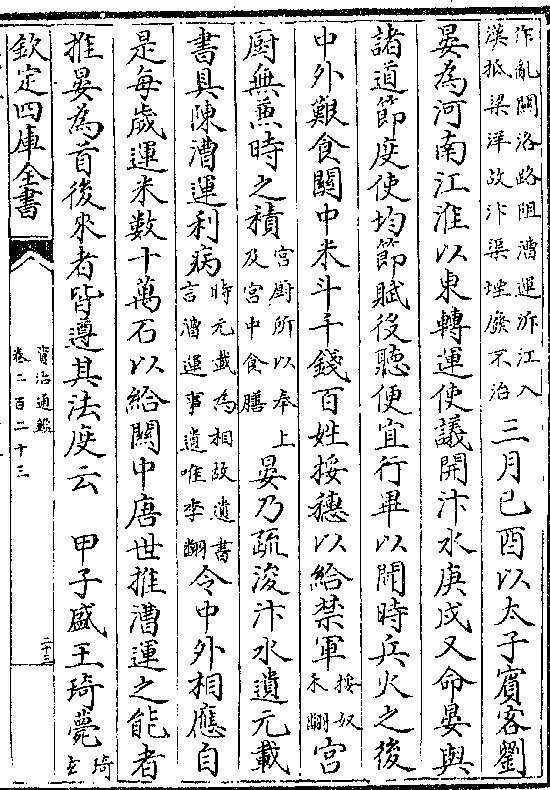 作亂關洛路阻漕運泝江入
漢抵梁洋故汴渠堙廢不治
三月己酉以太子賓客劉
晏為河南江淮以東轉運使議開汴水庚戌又命晏與
諸道節度使均節賦役聽便宜行畢以聞時兵火之後
中外艱食關中米斗千錢百姓挼穗以給禁軍
挼奴
禾翻
宮
厨無兼時之積
宮厨所以奉上
及宮中食膳
晏乃疏浚汴水遺元載
書具陳漕運利病
時元載為相故遺書
言漕運事遺唯季翻
令中外相應自
是每歲運米數十萬石以給關中唐世推漕運之能者
推晏為首後來者皆遵其法度云 甲子盛王琦薨
琦
玄
欽定四庫全書
資治通鑑
卷二百二十三
二十三